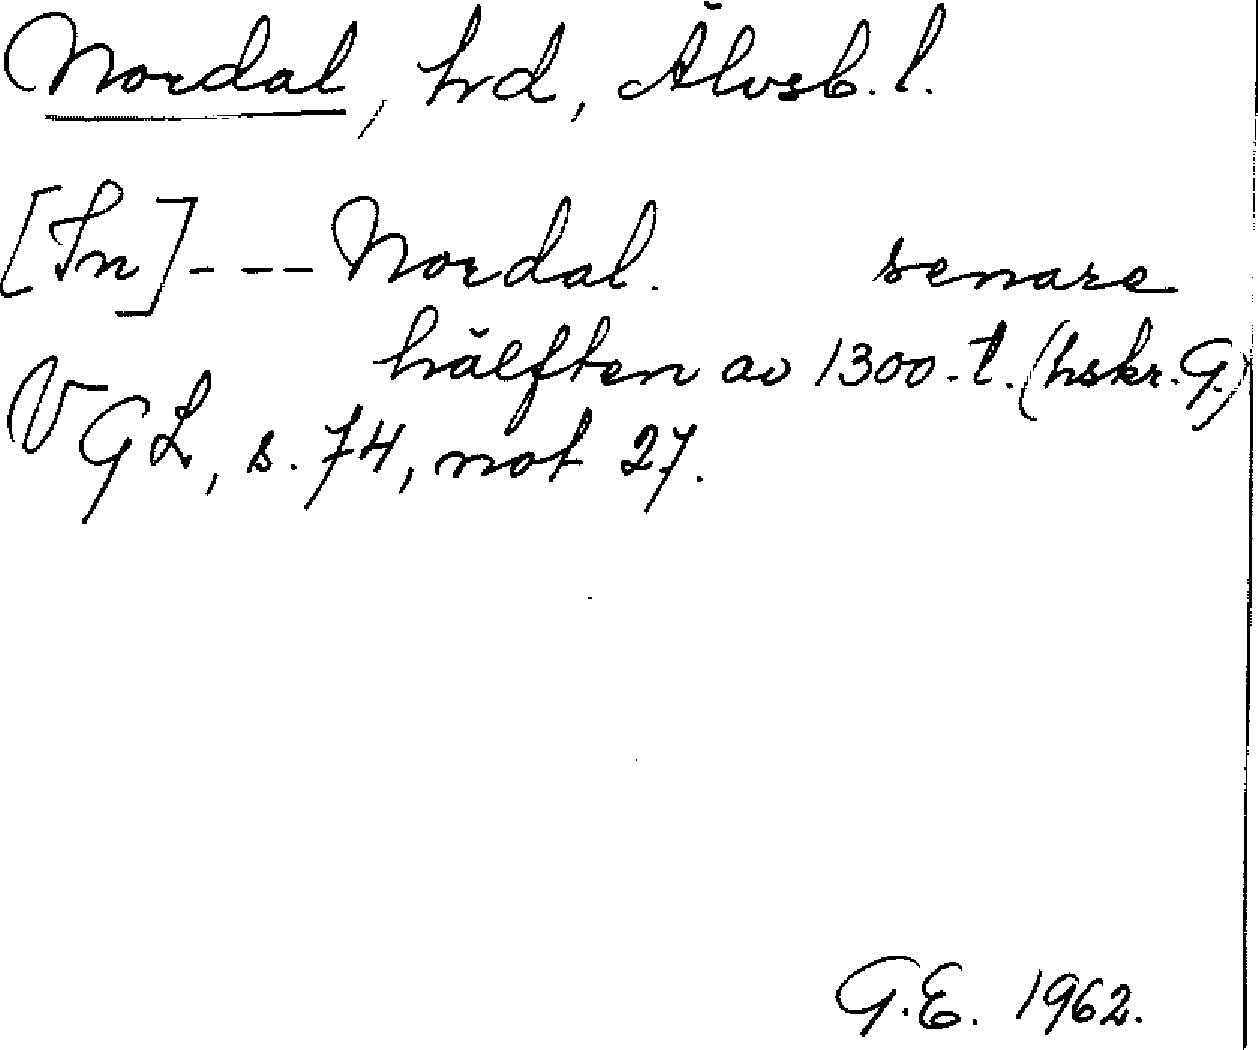 Nordal, hd, Älvsb. l.
[In] --- Nordal. senare
hälften av 1300-t. (hskr. G.)
VGL, s. 74, not 27.
G.E. 1962.